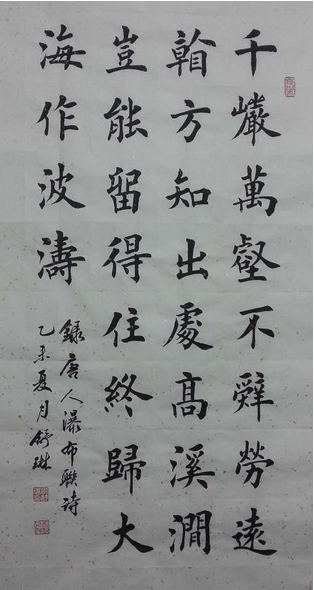 千巖萬壑不辤勞遠
㸔方知出處髙溪澗
豈能留得住終歸大
海作波濤
録唐人瀑布聯詩
乙未夏月舒琳